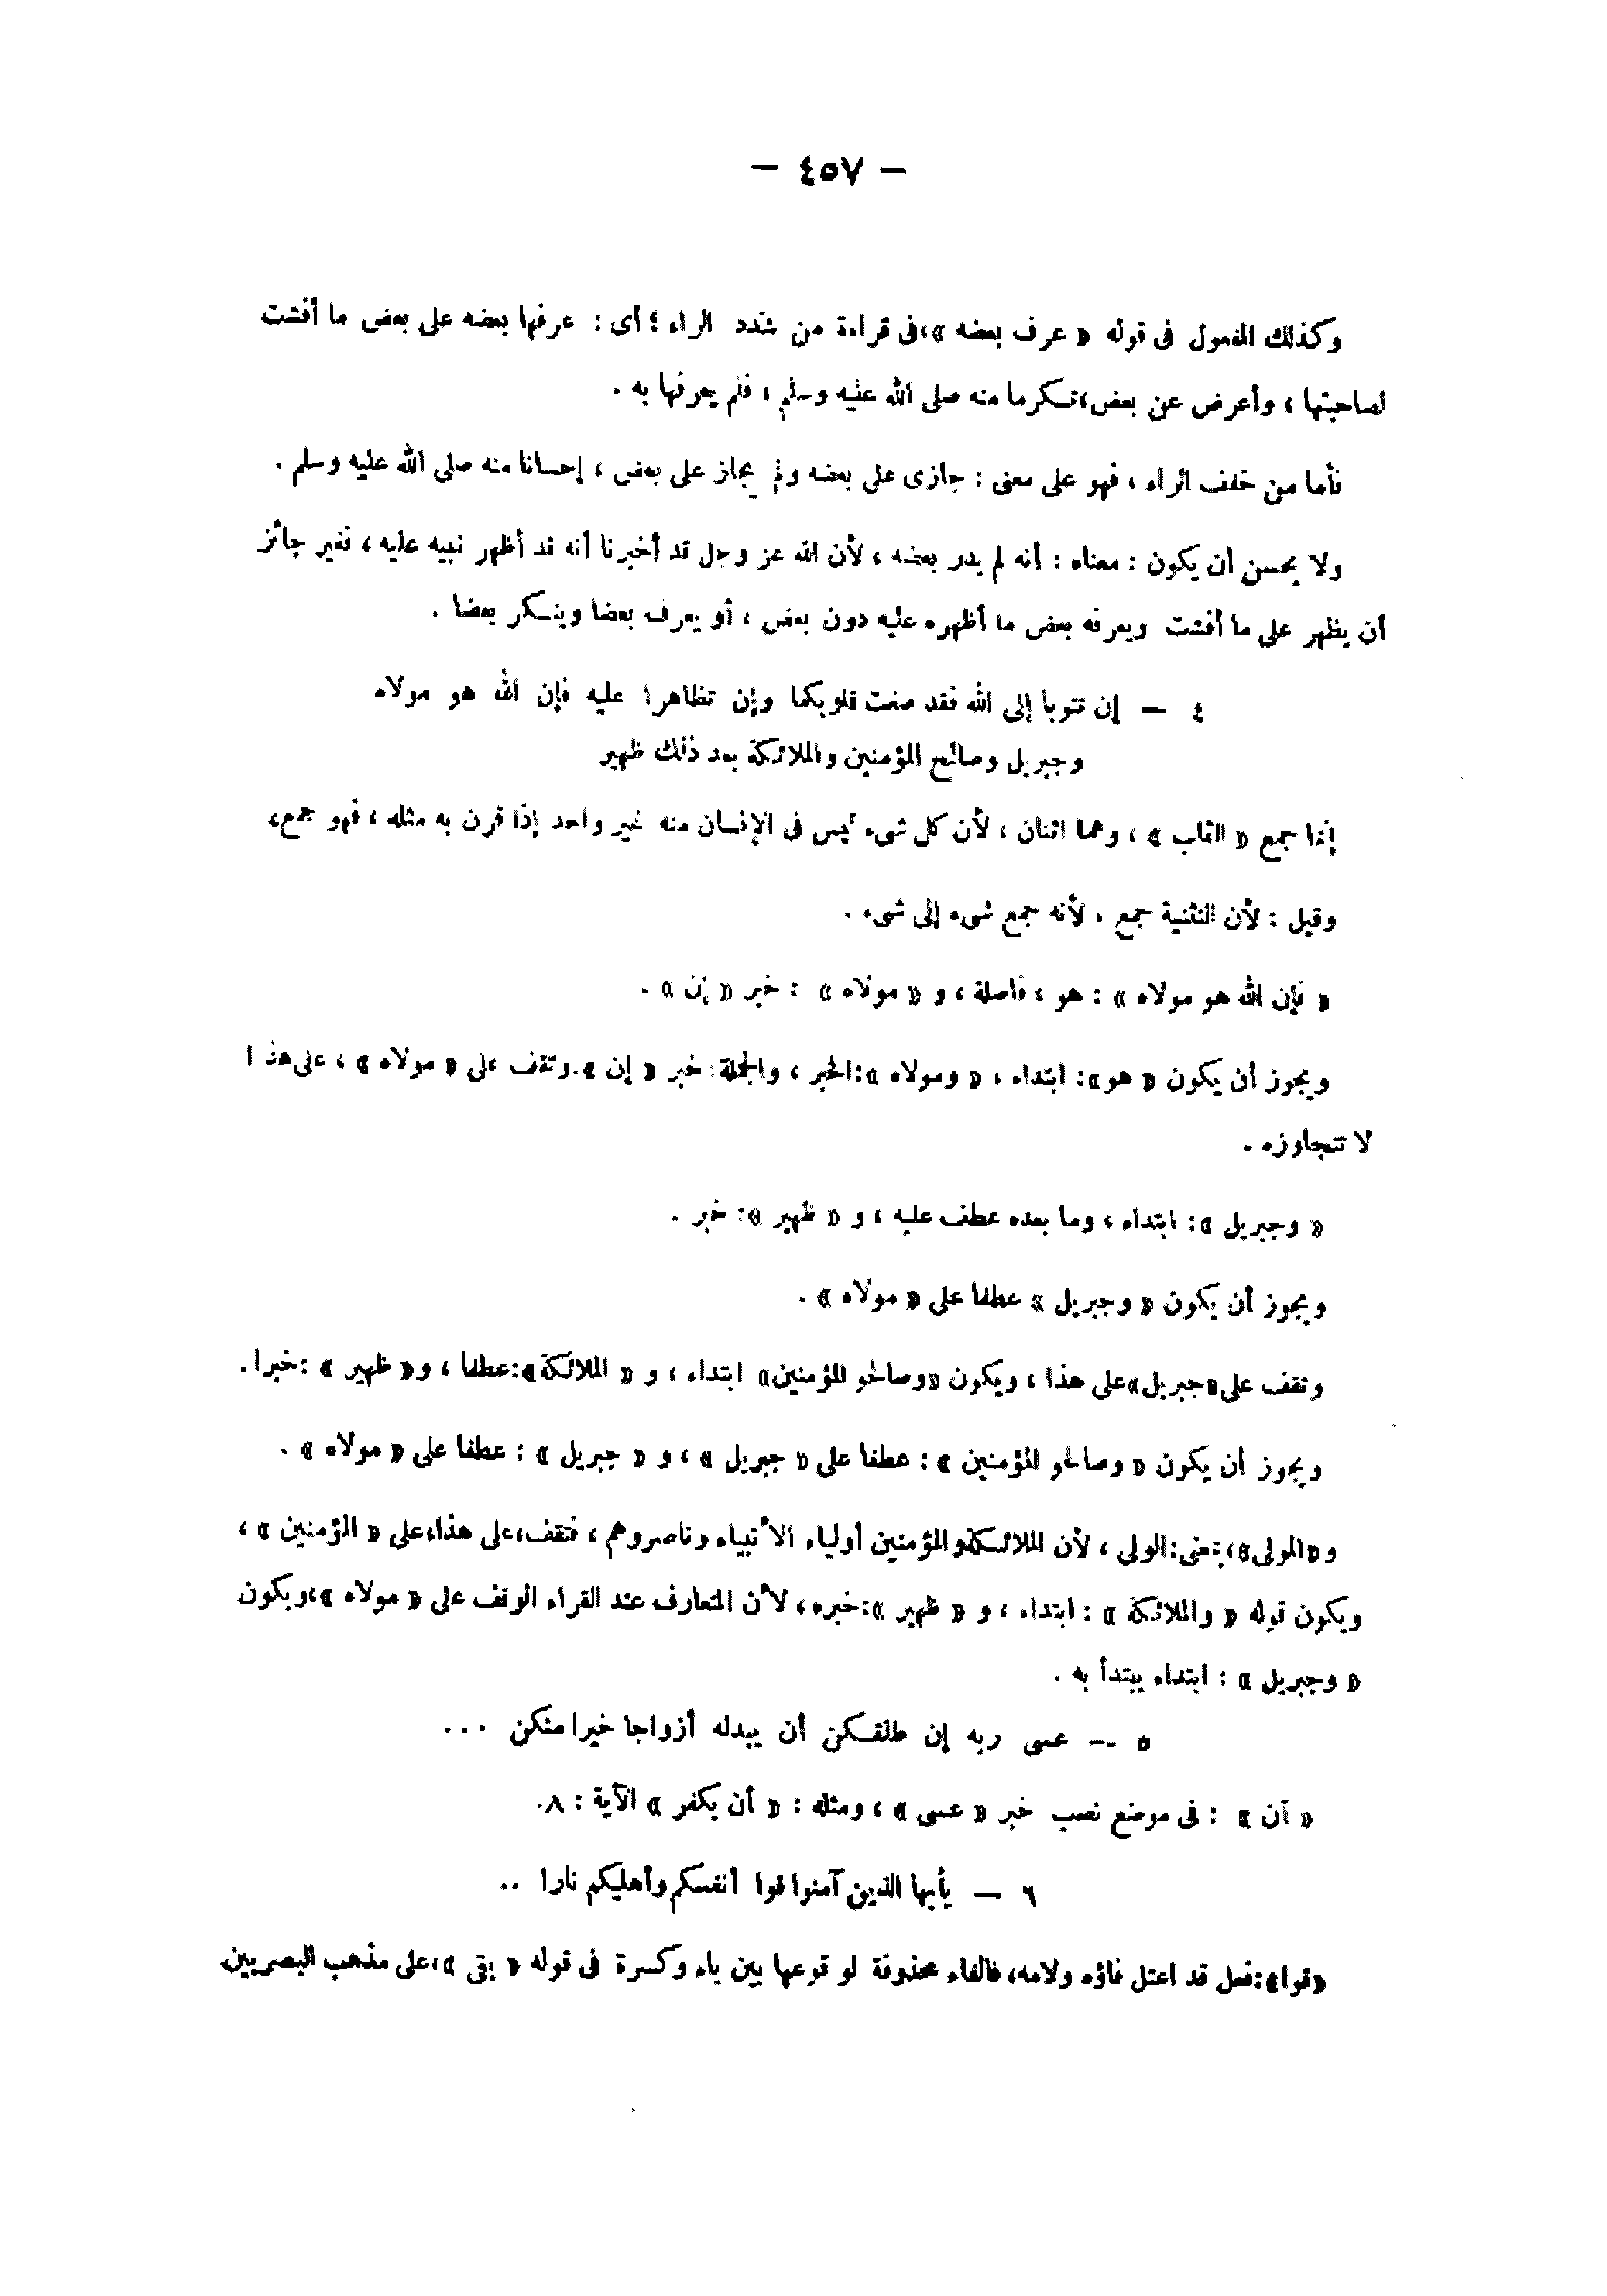 — ٤٥٧ —
وكذلك المفعول فى قوله « عرف بعضه »،فى قراءة من شدد الراء ؛ أى : عرفها بعضه على بعض ما أفشت
لصاحبتها ، وأعرض عن بعض،تكرما منه صلى الله عليه وسلم ، فلم يعرفها به .
فأما من خفف الراء ، فهو على معنى : جازى على بعضه ولم يجاز على بعض ، إحسانا منه صلى الله عليه وسلم .
ولا يحسن أن يكون : معناه : أنه لم يدر بعضه ، لأن الله عز وجل قد أخبرنا أنه قد أظهر نبيه عليه ، فغير جائز
أن يظهر على ما أفشت ويعرفه بعض ما أظهره عليه دون بعض ، أو يعرف بعضا وينكر بعضا .
٤ — إن تتوبا إلى الله فقد صغت قلوبكما وإن تظاهرا عليه فإن الله هو مولاه
وجبريل وصالح المؤمنين والملائكة بعد ذلك ظهير
إذا جمع « القلب » ، وهما اثنان ، لأن كل شىء ليس فى الإنسان منه غير واحد إذا قرن به مثله ، فهو جمع،
وقيل : لأن التثنية جمع ، لأنه جمع شىء إلى شىء .
« فإن الله هو مولاه » : هو ، فاصلة ، و « مولاه » : خبر « إن » .
ويجوز أن يكون « هو»: ابتداء ، « ومولاه »:الخبر ، والجملة: خبر « إن ».وتقف على « مولاه » ، على هذا
لا تتجاوزه .
« وجبريل »: ابتداء ، وما بعده عطف عليه ، و « ظهير »: خبر .
ويجوز أن يكون « وجبريل » عطفا على « مولاه » .
وتقف على«جبريل»على هذا ، ويكون «وصالحو المؤمنين» ابتداء ، و « الملائكة»:عطفا ، و« ظهير » :خبرا.
ويجوز أن يكون « وصالحو المؤمنين » : عطفا على « جبريل » ، و « جبريل » : عطفا على « مولاه » .
و«المولى»،بمعنى:الولى ، لأن الملائكةوالمؤمنين أولياء الأنبياء وناصروهم ، فتقف،على هذا،على « المؤمنين » ،
ويكون قوله « والملائكة » : ابتداء ، و « ظهير »:خبره، لأن المتعارف عند القراء الوقف على « مولاه »،ويكون
« وجبريل » : ابتداء يبتدأ به .
٥ — عسى ربه إن طلقكن أن يبدله أزواجا خيرا منكن ...
« أن » : فى موضع نصب خبر « عسى » ، ومثله : « أن يكفر » الآية : ٨.
٦ — يأيها الذين آمنوا قوا أنفسكم وأهليكم نارا ..
«قوا»:فعل قد اعتل فاؤه ولامه، فالفاء محذوفة لو قوعها بين ياء وكسرة فى قوله « يقى »،على مذهب البصريين